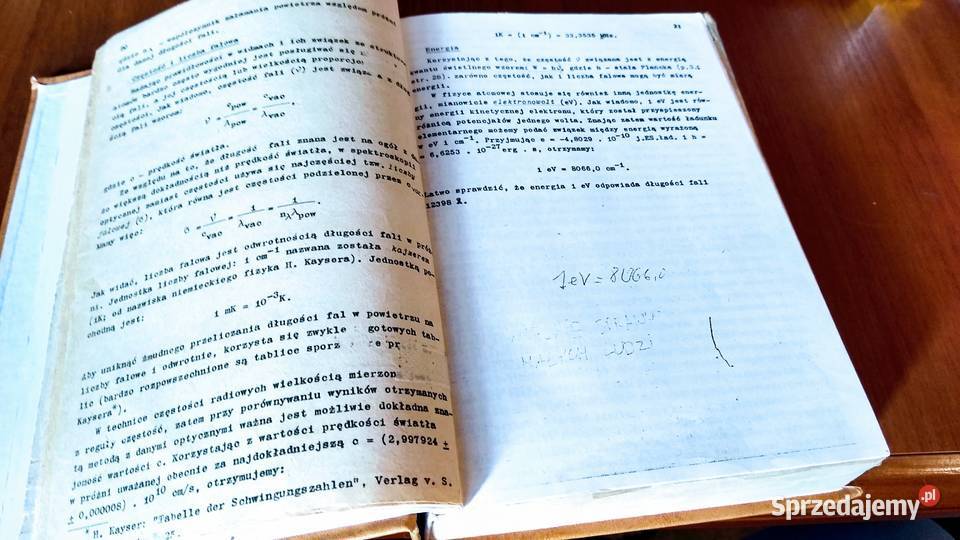 20
gdzie nλ - współczynnik załamania powietrza względem próżni
dla danej długości fali.
Częstość i liczba falowa
Badając prawidłowości w widmach i ich związek ze struktur
atomów bardzo często wygodniej jest posługiwać się
cią fali, a jej częstością lub wielkością proporcjo
częstości. Jak wiadomo, częstość fali (ν) jest związa z dłu
gością fali wzorem:
ν = cpow / λpow = cvac / λvac
gdzie c - prędkość światła.
Ze względu na to, że długość fali znana jest na ogół z du
żo większą dokładnością niż prędkość światła, w spektroskopii
optycznej zamiast częstości używa się najczęściej tzw. liczby
falowej (σ), która równa jest częstości podzielonej przez
Mamy więc:
σ = ν / cvac = 1 / λvac = 1 / nλλpow .
Jak widać, liczba falowa jest odwrotnością długości fali w próż
ni. Jednostka liczby falowej: 1 cm-1 nazwana została kajzerem
(1K; od nazwiska niemieckiego fizyka H. Kaysera). Jednostką po-
chodną jest:
1 mK = 10-3K.
Aby uniknąć żmudnego przeliczania długości fal w powietrzu na
liczby falowe i odwrotnie, korzysta się zwykle gotowych tab-
lic (bardzo rozpowszechnione są tablice sporz e pr
Kaysera*).
W technice częstości radiowych wielkością mierzon jest
z reguły częstość, zatem przy porównywaniu wyników otrzymanych
tą metodą z danymi optycznymi ważna jest możliwie dokładna zna-
jomość wartości c. Korzystając z wartości prędkości światła
w próżni uważanej obecnie za najdokładniejszą c = (2,997924 ±
± 0,000008) . 10^10 cm/s, otrzymujemy:
* H. Kayser: "Tabelle der Schwingungszahlen", Verlag v. S.
25.
21
1K = (1 cm-1) = 33,3535 µHz.
Energia
Korzystając z tego, że częstość ν związana jest z energią
kwantu świetlnego wzorem: W = hν, gdzie h - stała Plancka (p.3.1
str. 2b), zarówno częstość, jak i liczba falowa mogą być miarą
energii.
W fizyce atomowej stosuje się również inną jednostkę ener-
gii, mianowicie elektronowolt (eV). Jak wiadomo, 1 eV jest rów-
ny energii kinetycznej elektronu, który został przyspieszony
różnicą potencjałów jednego wolta. Znając zatem wartość ładunku
elementarnego możemy podać związek między energią wyrażoną
w eV i cm-1. Przyjmując e = -4,8029 . 10-10 j.ES.ład. i h =
= 6,6253 . 10-27 erg . s, otrzymamy:
1 eV = 8066,0 cm-1.
Łatwo sprawdzić, że energia 1 eV odpowiada długości fali
12398 Å.
1eV = 8066,0
Sprzedajemy.pl